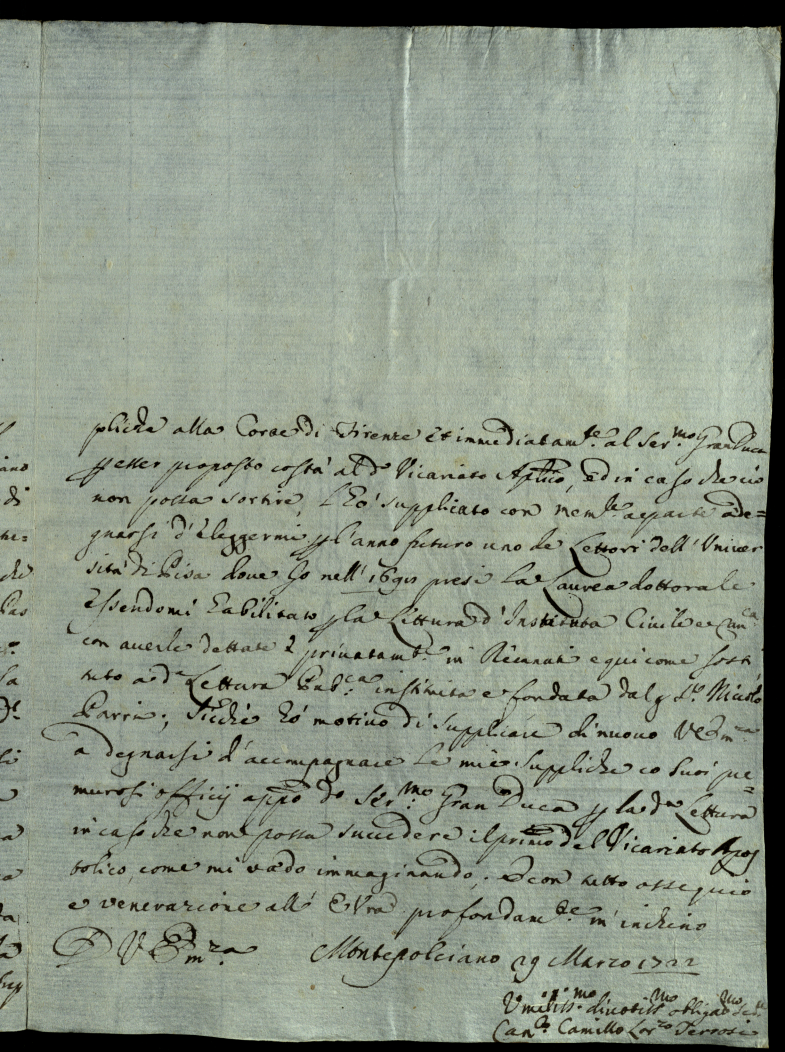 pliche alla Corte di Firenze et immediatam.te al Ser.mo GranDuca
p esser proposto costà al d.o Vicariato Aplico, ed in caso che ciò
non possa sortire, l'hò supplicato con mem.le a parte a de=
gnarsi d'eleggermi p l'anno futuro uno de Lettori dell'Univer
sità di Pisa dove Io nell' presi la Laurea dottorale
Essendomi habilitato p la Lettura d'Instituta Civile e
con averle dettate privatam.te in Recanati e qui come sosti
tuto a d.a Lettura Pub.ca instituita e fondata dal q S.r Nicolò
Parri; sicchè hò motivo di supplicare di nuovo VEm.za
a degnarsi d'accompagnare le mie suppliche co suoi pre=
murosi officij appò do Ser.mo Gran Duca p la d.a Lettura
in caso che non possa succedere il primo del Vicariato Apos
tolico, come mi vado immaginando; e con tutto ossequio
e venerazione all' E Vra profondam.te m'inchino
D V Em.za Montepolciano 29 Marzo 1722
Umiliss.mo divotiss.mo obligat.mo
Can.co Camillo Lor.zo Terrosi